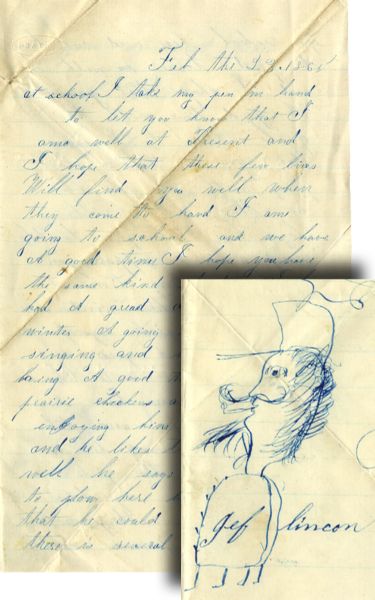 Feb the 1865
at school I take my pen in hand
to let you know that I
am well at Present and
I hope that these few lines
Will find you well when
they come to hand I am
going to school and we have
a good time I hope you have
the same kind
had a
winter A going
singing and
haing A good
prairie chickens
enjoying hims
and he likes
well he says
to plow here
that he could
there is several
Jef lincon